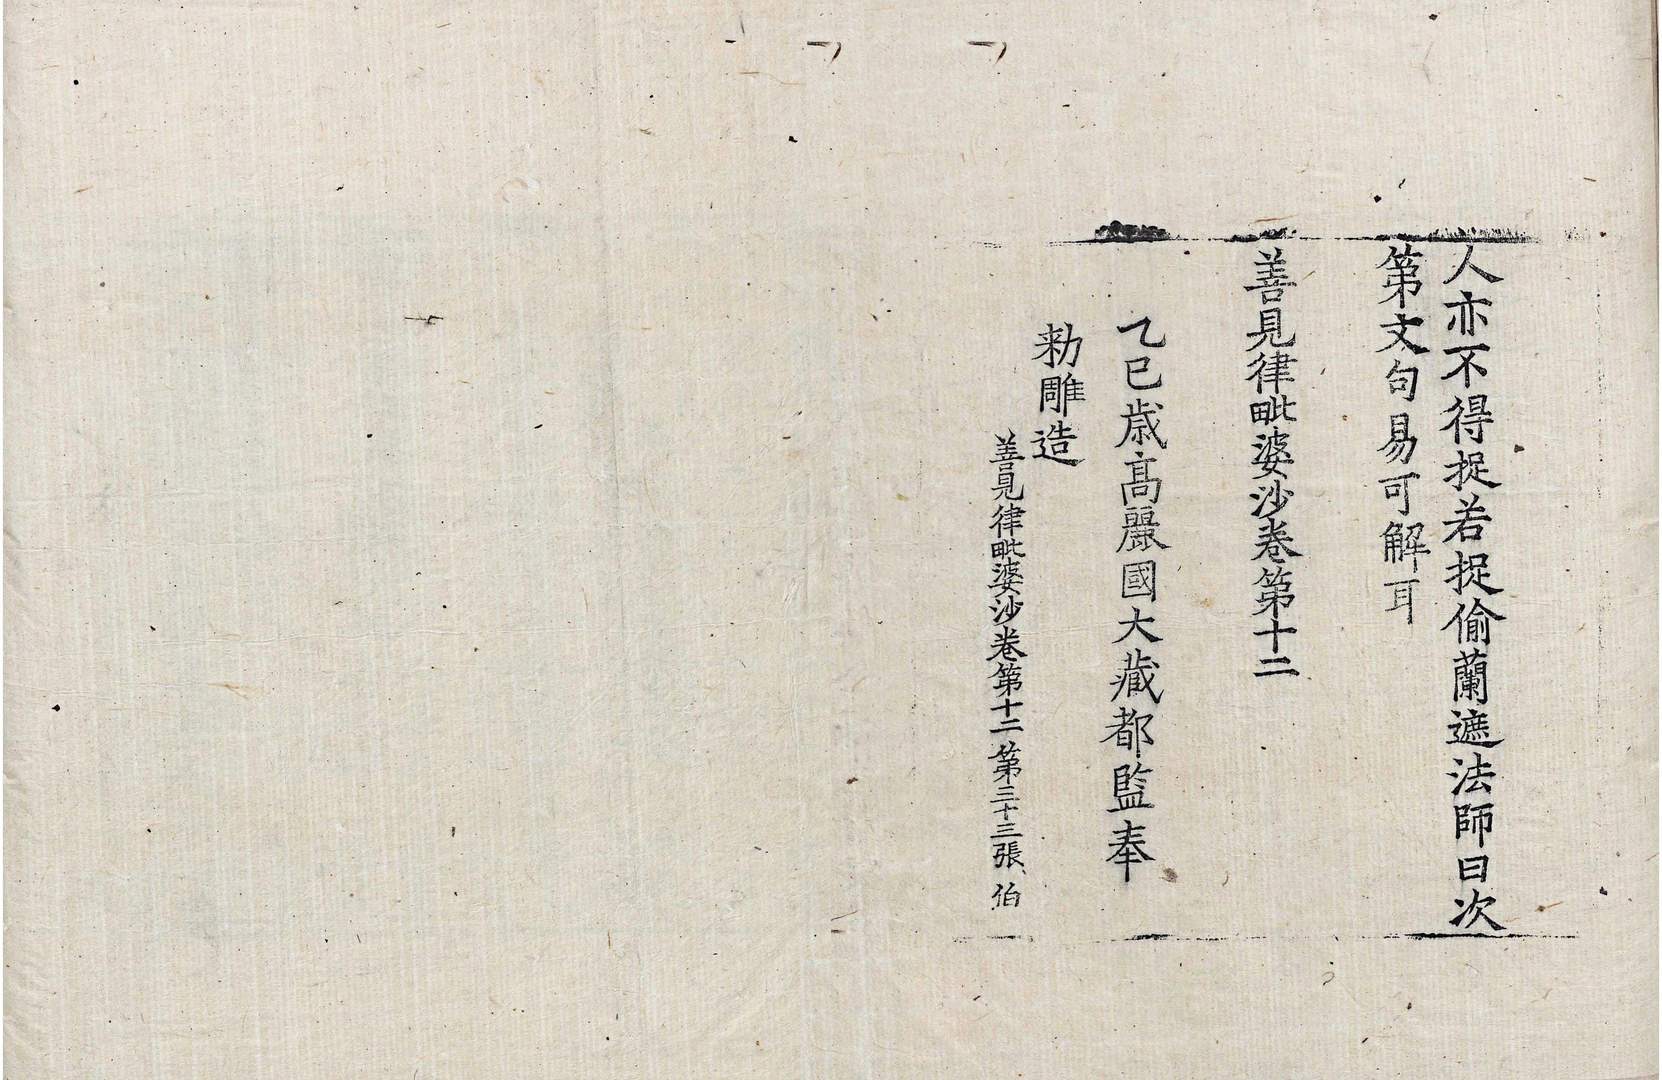 人亦不得捉若捉偷蘭遮法師曰次
第文句易可解耳
善見律毗婆沙卷第十二
乙巳歲高麗國大藏都監奉
勑雕造
善見律毗婆沙卷第十二 第三十三張 伯